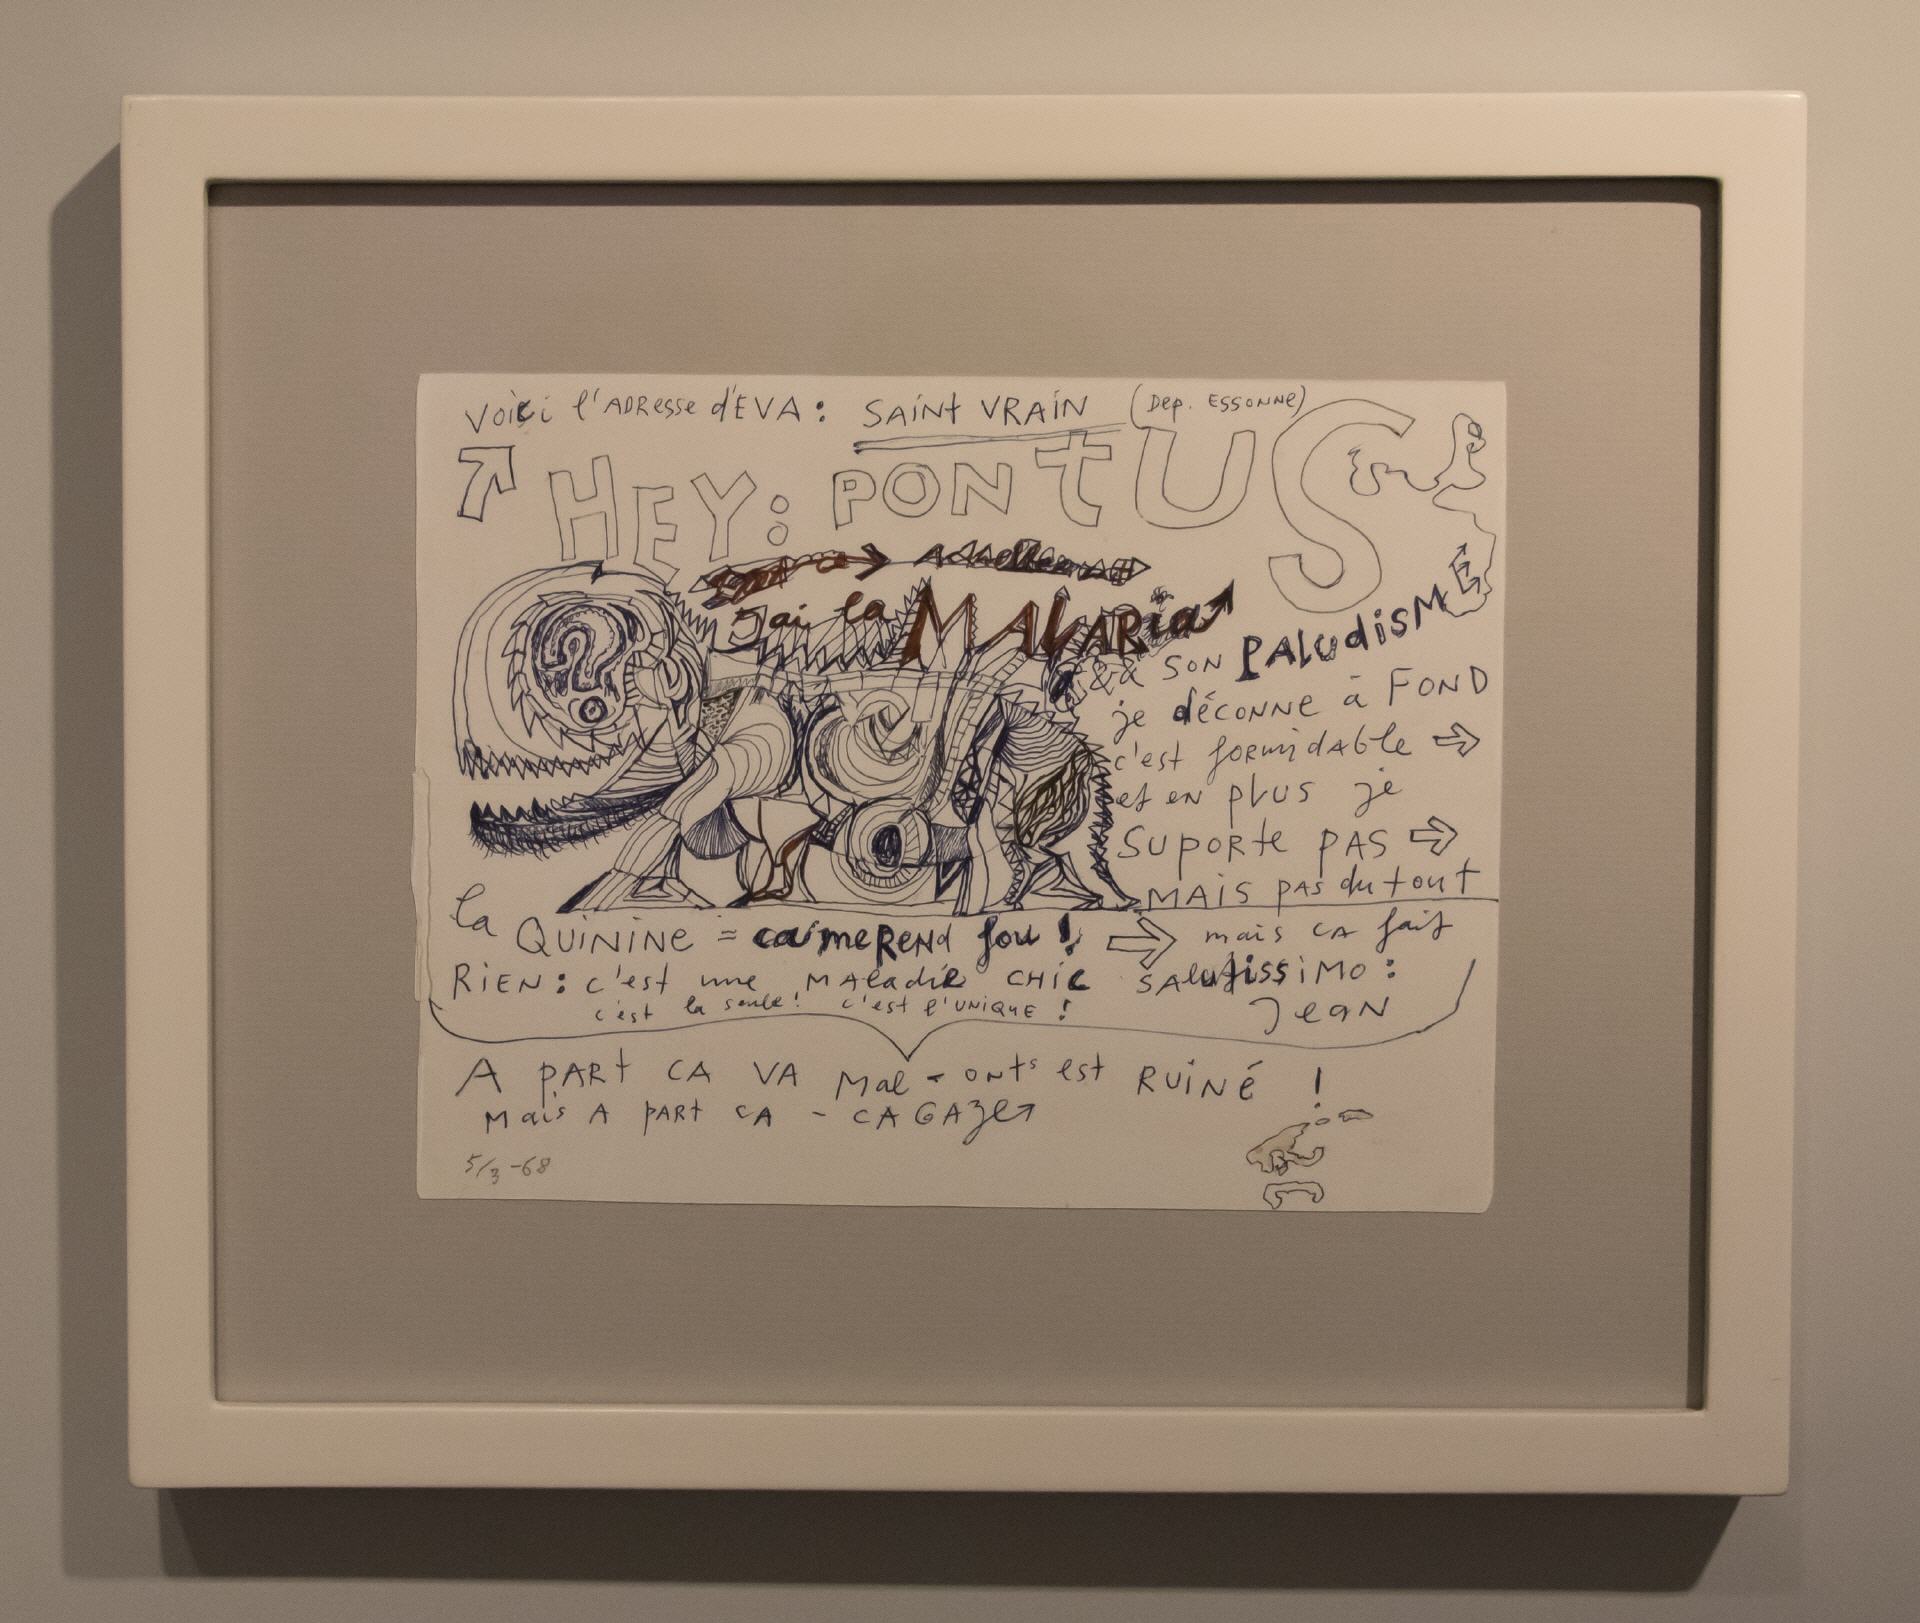 Voici l'ADResse d'EVA : SAINT VRAIN (Dep. ESSONNE)
HEY: PONTUS
J'ai la MALARIA
SON PALUDISME
je déconne à FOND
c'est formidable
et en plus je
SUPORTE PAS
MAIS PAS du tout
la QUININE = ca me REND fou ! mais CA fait
RIEN : c'est une MAladie CHIC SAlutissiMO :
c'est la seule ! c'est l'UNIQUE ! Jean
A PART CA VA Mal - est RUINÉ !
Mais A part CA - CA GAZe
5/3 -68